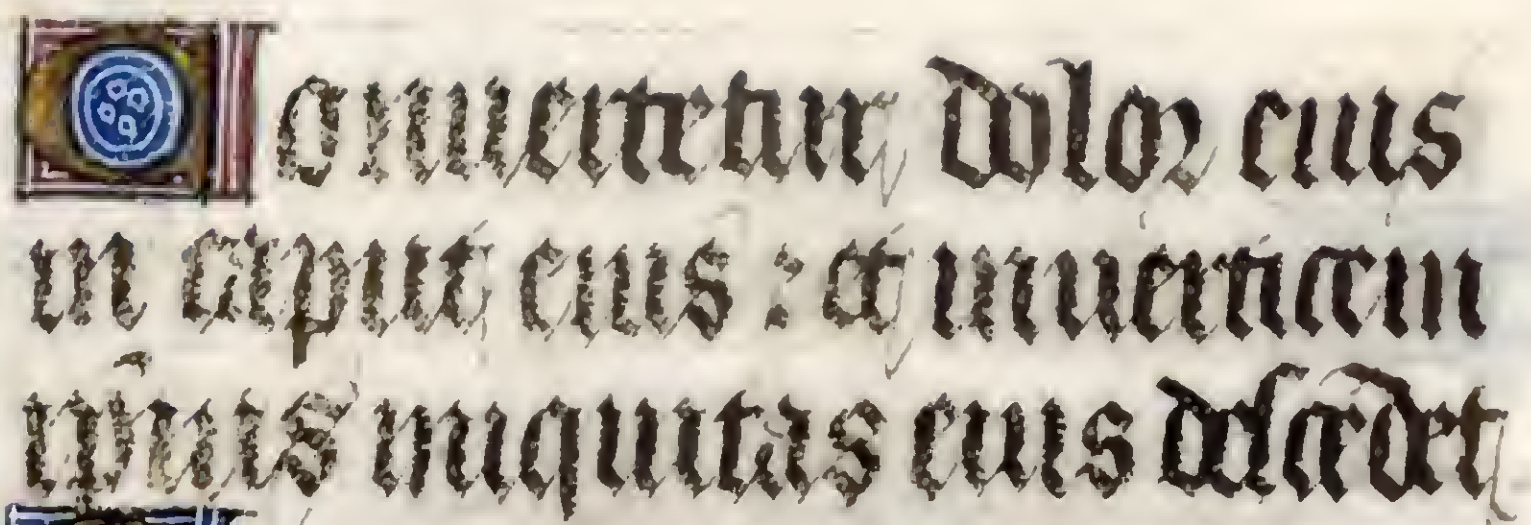 Conuertetur dolor eius
in caput eius : et in uerticem
ipsius iniquitas eius descedet